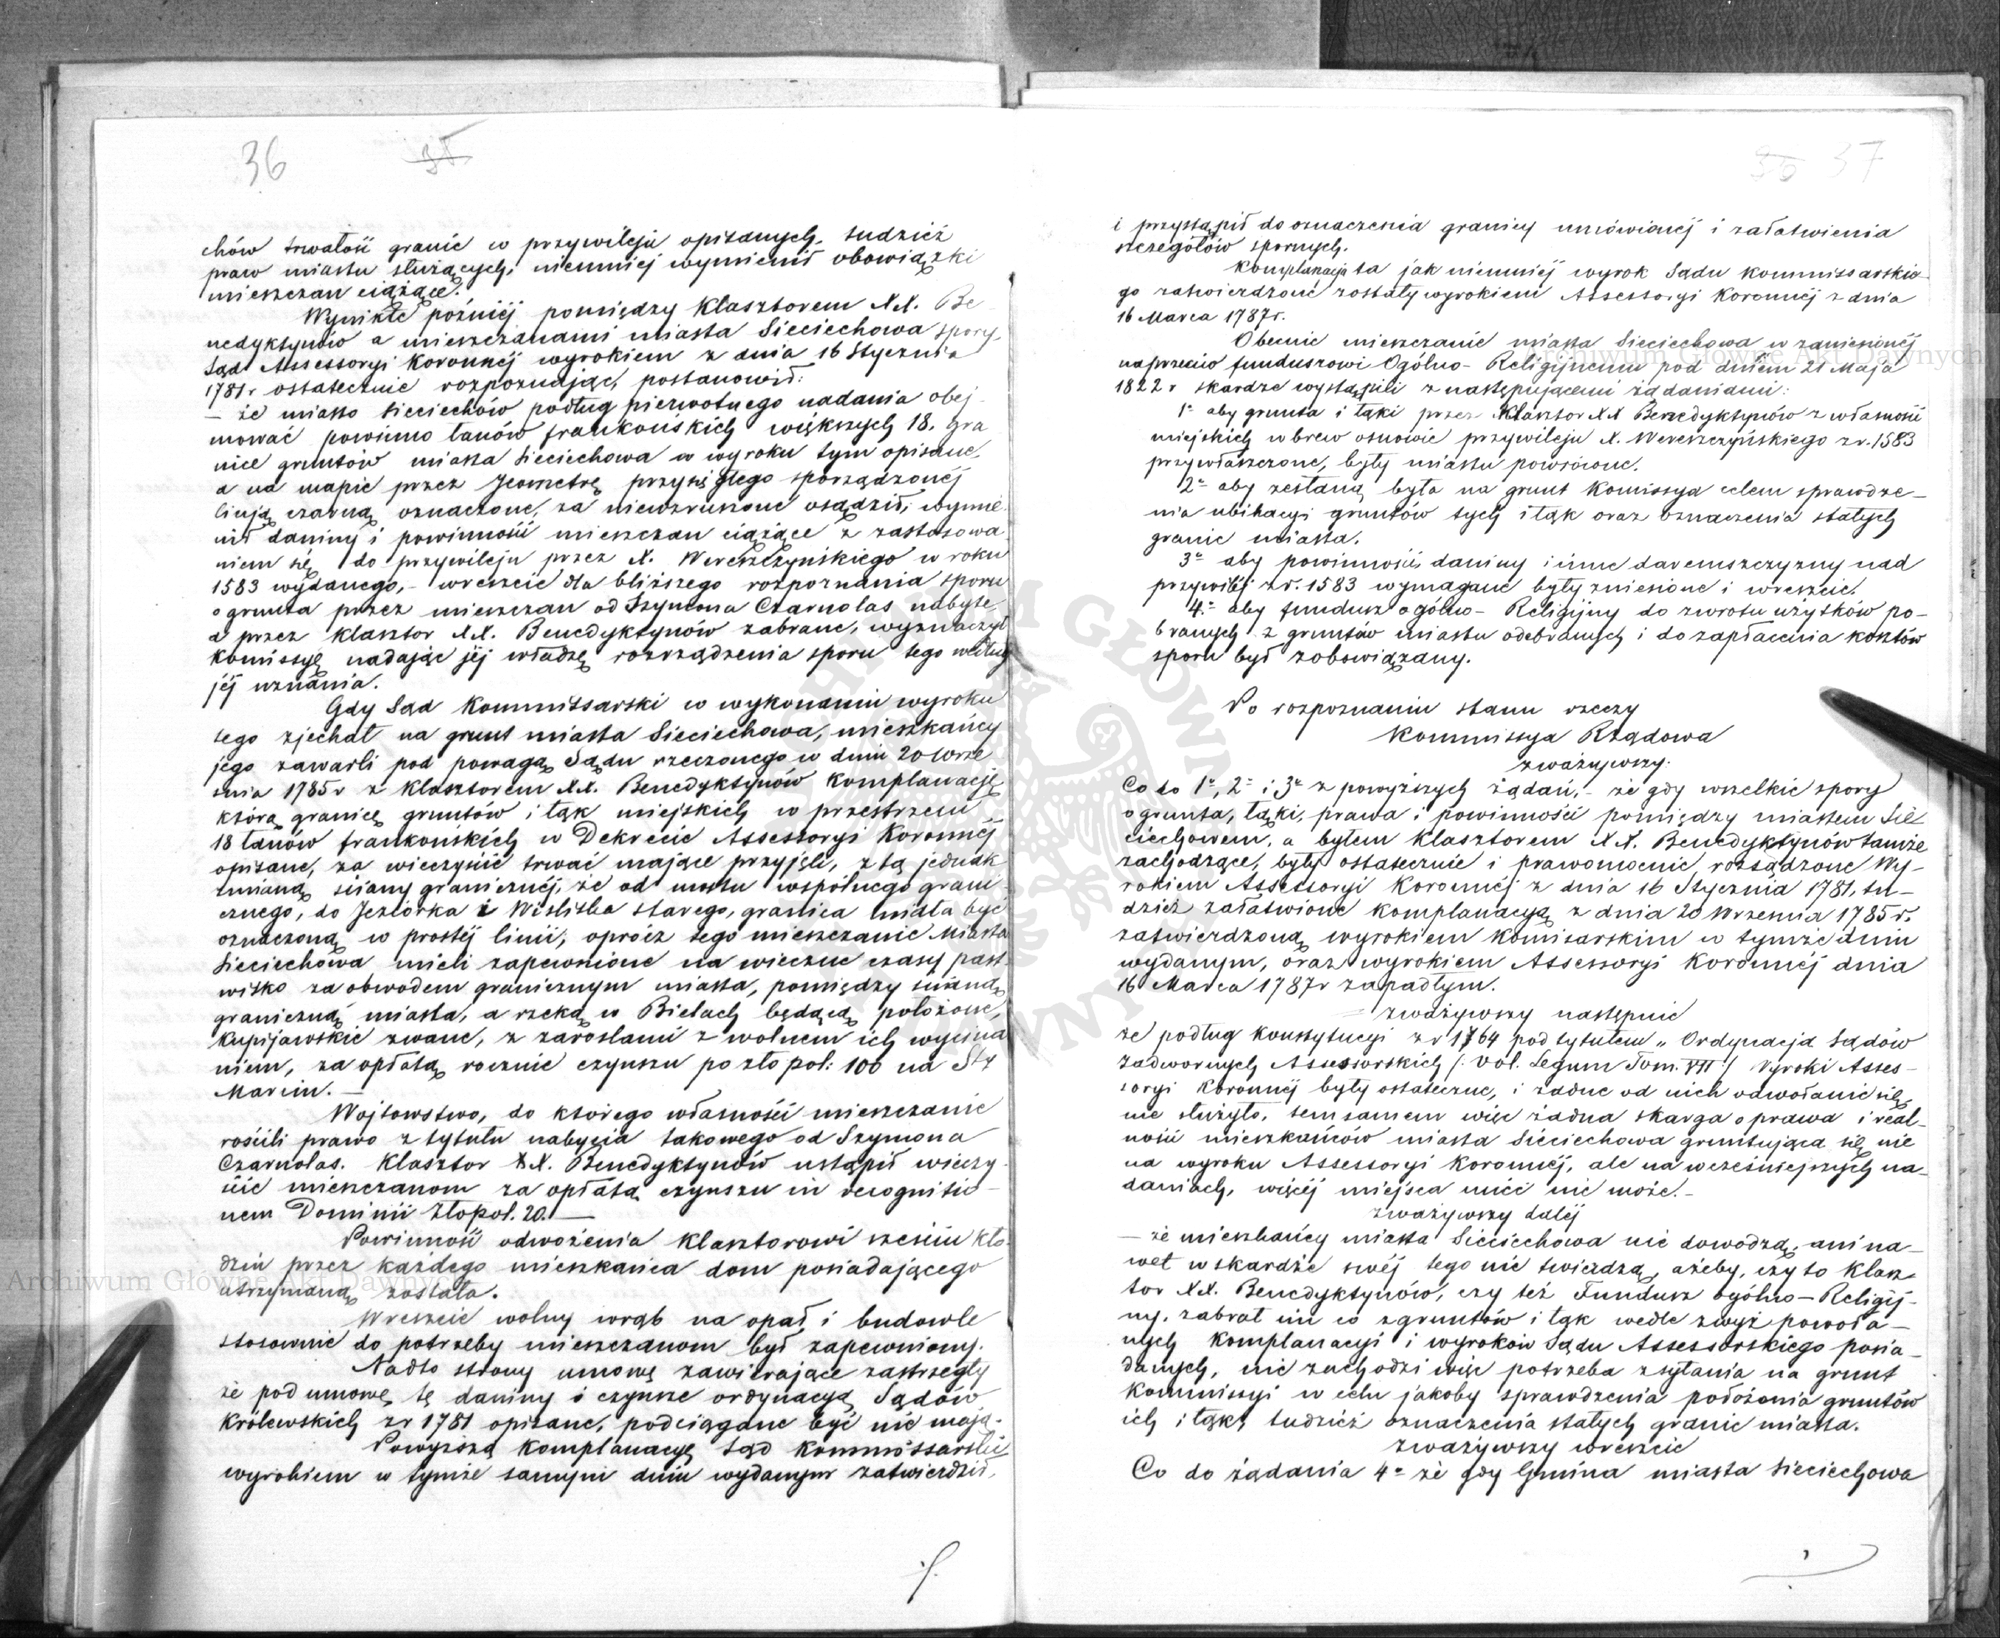 36 35
chów trwałość granic w przywileju opisanych, tudzież
praw miastu służących, niemniej wymienił obowiązki
mieszczan ciążące.
Wynikłe późniéj pomiędzy Klasztorem XX. Be-
nedyktynów a mieszczanami miasta Sieciechowa spory,
Sąd Assessoryi Koronnéj wyrokiem z dnia 16 Stycznia
1781 r ostatecznie rozpoznając, postanowił:
— że miasto Sieciechów podług pierwotnego nadania obej-
mować powinno łanów frankońskich większych 18. Gra
nice gruntów miasta Sieciechowa w wyroku tym opisane,
a na mapie przez Jeometrę przysięgłego sporządzonéj
liniją czarną oznaczone, za niewzruszone osądził, wymie-
nił daniny i powinności mieszczan ciążące z zastosowa-
niem się do przywileju przez X. Wereszczyńskiego w roku
1583 wydanego, — wreszcie dla bliższego rozpoznania sporu
o grunta przez mieszczan od Szymona Czarnolas nabyte,
a przez Klasztor XX. Benedyktynów zabrane, wyznaczył
Komissyę nadając jéj władzę rozrządzenia sporu tego według
jéj uznania.
Gdy Sąd Kommissarski w wykonaniu wyroku
tego zjechał na grunt miasta Sieciechowa, mieszkańcy
jego zawarli pod powagą Sądu rzeczonego w dniu 20 Wrze-
śnia 1785 r z Klasztorem XX. Benedyktynów komplanacyję
którą granicę gruntów i łąk miejskich w przestrzeni
18 łanów frankońskich w Dekrecie Assessoryi Koronnéj
opisane, za wieczyście trwać mające przyjęli, z tą jednak
zmianą ściany granicznéj, że od mostu wspólnego grani-
cznego, do Jeziorka i Wiśliska starego, granica miała być
oznaczoną w prostéj linii, oprócz tego mieszczanie Miasta
Sieciechowa mieli zapewnione na wieczne czasy past
wisko za obwodem granicznym miasta, pomiędzy ścianą
graniczną miasta, a rzeką w Bielach będącą położone,
Kupijawskie zwane, z zaroslami z wolnem ich wycina
niem, za opłatą rocznie czynszu po złp pol: 100 na Sty
Marcin. —
Wojtowstwo, do którego własności mieszczanie
rościli prawo z tytułu nabycia takowego od Szymona
Czarnolas. Klasztor XX. Benedyktynów ustąpił wieczy-
ście mieszczanom za opłatą czynszu in recognitio-
nem Dominii złopol. 20. —
Powinność odwożenia klasztorowi sześciu kło-
dzin przez każdego mieszkańca dom posiadającego
utrzymaną została.
Wreszcie wolny wrąb na opał i budowle
stosownie do potrzeby mieszczanom był zapewniony.
Nadto strony umowę zawierające zastrzegły
że pod umowę tę daniny i czynsze ordynacyą Sądów
Królewskich z r 1781 opisane, podciągane być nie mają.
Powyższą komplanacyę Sąd Kommissarski
wyrokiem w tymże samym dniu wydanym zatwierdził,
36 37
i przystąpił do oznaczenia granicy umówionéj i załatwienia
szczegółów spornych.
Komplanacja ta jak niemniéj wyrok Sądu Kommissarskie-
go zatwierdzone zostały wyrokiem Assessoryi Koronnéj z dnia
16 Marca 1787 r.
Obecnie mieszczanie miasta Sieciechowa w zaniesionéj
naprzeciw funduszowi Ogólno-Religijnemu pod dniem 21 Maja
1822 r skardze wystąpili z następującemi żądaniami:
1o aby grunta i łąki przez Klasztor XX Benedyktynów z własności
miejskich wbrew osnowie przywileju X. Wereszczyńskiego z r. 1583
przywłaszczone, były miastu powrócone.
2o aby zesłaną była na grunt Komissya celem sprawdze-
nia ubikacyi gruntów tych i łąk oraz oznaczenia stałych
granic miasta.
3o aby powinności daniny i inne daremszczyzny nad
przywiléj z r. 1583 wymagane były zniesione i wreszcie.
4o aby fundusz ogólno-Religijny do zwrotu użytków po-
branych z gruntów miastu odebranych i do zapłacenia kosztów
sporu był zobowiązany.
Po rozpoznaniu stanu rzeczy
Kommissya Rządowa
zważywszy.
Co do 1o, 2o i 3o z powyższych żądań, — że gdy wszelkie spory
o grunta, łąki, prawa i powinności pomiędzy miastem Sie-
ciechowem, a byłem Klasztorem XX. Benedyktynów tamże
zachodzące, były ostatecznie i prawomocnie rozsądzone Wy-
rokiem Assessoryi Koronnéj z dnia 16 Stycznia 1781, tu-
dzież załatwione komplanacyą z dnia 20 Września 1785 r.
zatwierdzoną wyrokiem Komisarskim w tymże dniu
wydanym, oraz wyrokiem Assessoryi Koronnéj dnia
16 Marca 1787 r zapadłym.
zważywszy następnie
że podług konstytucyi z r 1764 pod tytułem „Ordynacja Sądów
Zadwornych Assessorskich /: Vol. Legum Tom. VII :/ Wyroki Asses-
soryi Koronnéj były ostateczne, i żadne od nich odwołanie się
nie służyło, tem samem więc żadna skarga o prawa i real-
ności mieszkańców miasta Sieciechowa gruntująca się nie
na wyroku Assessoryi Koronnéj, ale na wcześniejszych na-
daniach, więcéj miejsca mieć nie może. —
zważywszy daléj
— że mieszkańcy miasta Sieciechowa nie dowodzą, ani na-
wet w skardze swéj tego nie twierdzą, ażeby, czy to Klasz-
tor XX. Benedyktynów, czy też Fundusz Ogólno-Religij-
ny, zabrał im co z gruntów i łąk wedle zwyż powoła-
nych Komplanacyi i wyroków Sądu Assessorskiego posia-
danych, nie zachodzi więc potrzeba zsyłania na grunt
Kommissyi w celu jakoby sprawdzenia położenia gruntów
ich i łąk, tudzież oznaczenia stałych granic miasta.
zważywszy wreszcie
Co do żądania 4o że gdy Gmina miasta Sieciechowa
Archiwum Główne Akt Dawnych
Archiwum Główne Akt Dawnych